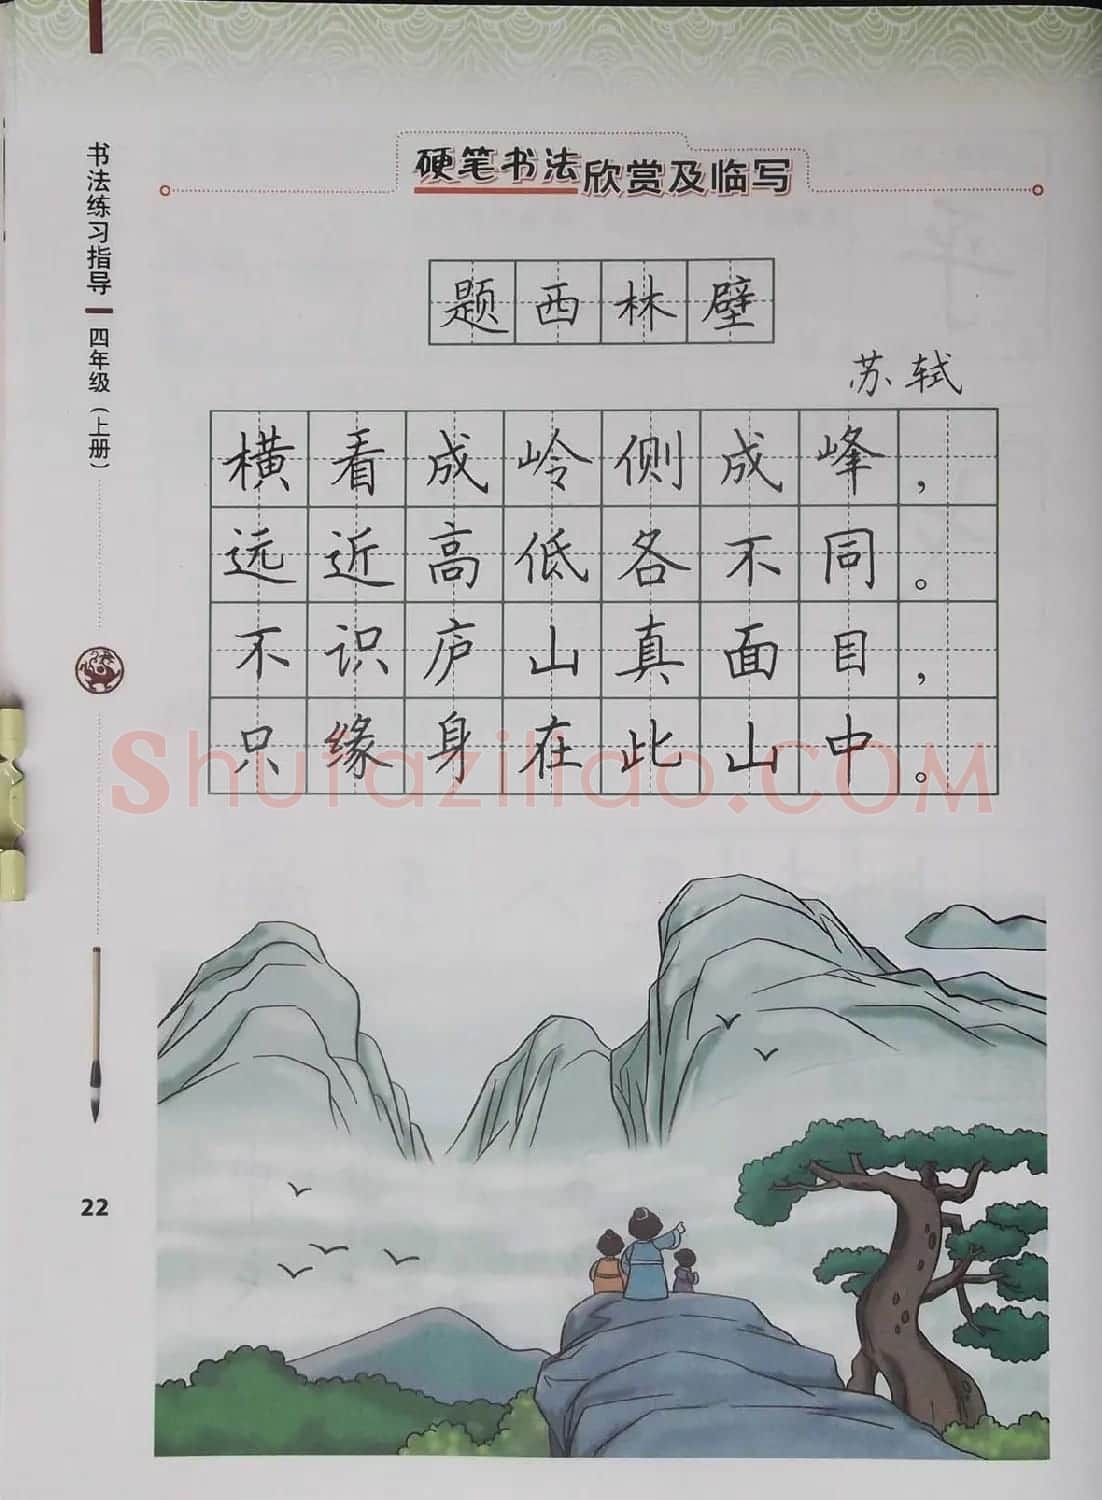 硬笔书法欣赏及临写
题西林壁
苏轼
横看成岭侧成峰，
远近高低各不同。
不识庐山真面目，
只缘身在此山中。
Shufaziliao.COM
书法练习指导
四年级（上册）
22